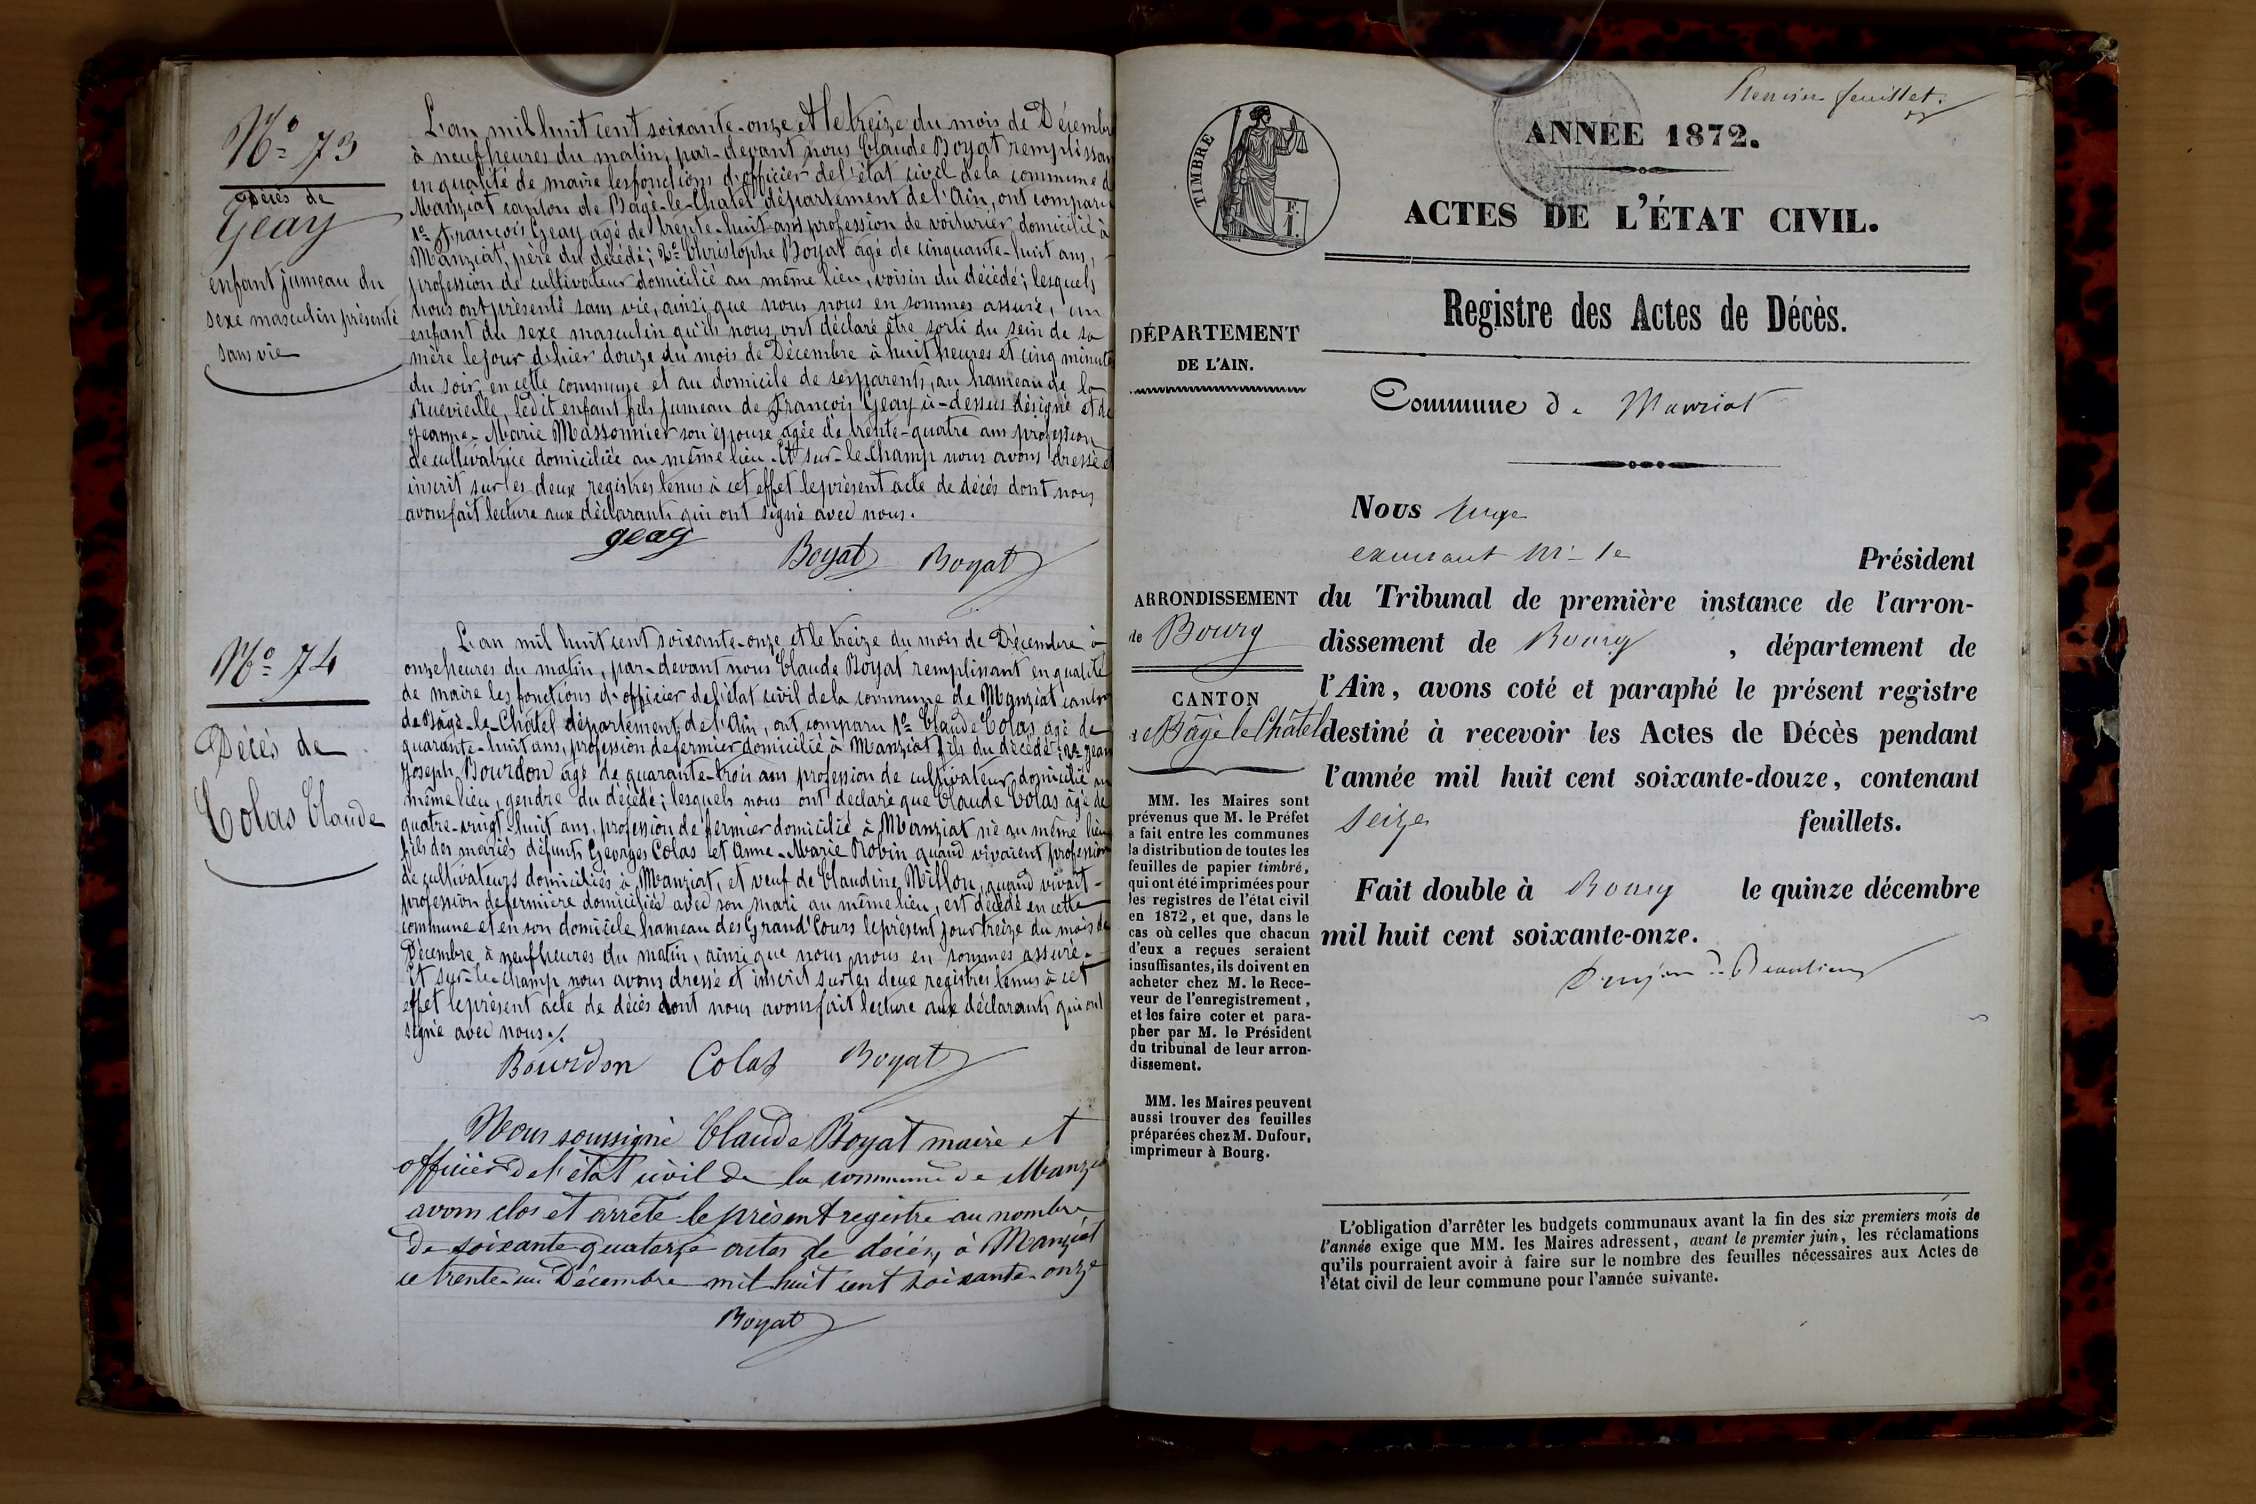 N° 73
Décès de
Geay
enfant jumeau du
sexe masculin présenté
sans vie
L'an mil huit cent soixante-onze et le treize du mois de Décembre
à neuf heures du matin, par-devant nous Claude Boyat remplissan
en qualité de maire les fonctions d'officier de l'état civil de la commune d
Manziat canton de Bâgé-le-Châtel département de l'Ain, ont comparu
1° François Geay agé de trente-huit ans profession de voiturier, domicilié à
Manziat, père du décédé; 2° Christophe Boyat agé de cinquante-huit ans,
profession de cultivateur domicilié au même lieu, voisin du décédé; lesquels
nous ont présenté sans vie, ainsi que nous nous en sommes assuré, un
enfant du sexe masculin qu'ils nous ont déclaré être sorti du sein de sa
mère le jour d'hier douze du mois de Décembre à huit heures et cinq minutes
du soir, en cette commune et au domicile de ses parents, au hameau de la
Ruevieille, ledit enfant fils jumeau de François Geay ci-dessus désigné et de
Jeanne-Marie Massonnier son épouse agée de trente-quatre ans profession
de cultivatrice domiciliée au même lieu. Et sur-le-champ nous avons dressé et
inscrit sur les deux registres tenus à cet effet le présent acte de décès dont nous
avons fait lecture aux déclarants qui ont signé avec nous.
geay
Boyat Boyat
N° 74
Décès de
Colas Claude
L'an mil huit cent soixante-onze et le treize du mois de Décembre à
onze heures du matin, par-devant nous Claude Boyat remplissant en qualité
de maire les fonctions d'officier de l'état civil de la commune de Manziat canton
de Bâgé-le-Châtel département de l'Ain, ont comparu 1° Claude Colas agé de
quarante-huit ans, profession de fermier domicilié à Manziat fils du décédé; 2° Jean
Joseph Bourdon agé de quarante-trois ans profession de cultivateur domicilié au
même lieu, gendre du décédé; lesquels nous ont déclaré que Claude Colas agé de
quatre-vingt-huit ans, profession de fermier domicilié à Manziat né au même lieu
fils des mariés défunts Georges Colas et Anne-Marie Robin quand vivaient profession
de cultivateurs domiciliés à Manziat, et veuf de Claudine Millon, quand vivait
profession de fermière domiciliée avec son mari au même lieu, est décédé en cette
commune et en son domicile hameau des Grand'Cours le présent jour treize du mois de
Décembre à neuf heures du matin, ainsi que nous nous en sommes assuré.
Et sur-le-champ nous avons dressé et inscrit sur les deux registres tenus à cet
effet le présent acte de décès dont nous avons fait lecture aux déclarants qui ont
signé avec nous./.
Bourdon Colas Boyat
Nous soussigné Claude Boyat maire et
officier de l'état civil de la commune de Manziat
avons clos et arrêté le présent registre au nombre
de soixante quatorze actes de décès, à Manziat
ce trente-un Décembre mil huit cent soixante-onze
Boyat
Premier feuillet.
TIMBRE
F.
1.
ANNÉE 1872.
ACTES DE L'ÉTAT CIVIL.
Registre des Actes de Décès.
DÉPARTEMENT
DE L'AIN.
Commune de Manziat
ARRONDISSEMENT
de Bourg
CANTON
de Bâgé le Châtel
MM. les Maires sont
prévenus que M. le Préfet
a fait entre les communes
la distribution de toutes les
feuilles de papier timbré,
qui ont été imprimées pour
les registres de l'état civil
en 1872, et que, dans le
cas où celles que chacun
d'eux a reçues seraient
insuffisantes, ils doivent en
acheter chez M. le Rece-
veur de l'enregistrement,
et les faire coter et para-
pher par M. le Président
du tribunal de leur arron-
dissement.
MM. les Maires peuvent
aussi trouver des feuilles
préparées chez M. Dufour,
imprimeur à Bourg.
Nous Juge
Président
du Tribunal de première instance de l'arron-
dissement de Bourg, département de
l'Ain, avons coté et paraphé le présent registre
destiné à recevoir les Actes de Décès pendant
l'année mil huit cent soixante-douze, contenant
Seize feuillets.
Fait double à Bourg le quinze décembre
mil huit cent soixante-onze.
L'obligation d'arrêter les budgets communaux avant la fin des six premiers mois de
l'année exige que MM. les Maires adressent, avant le premier juin, les réclamations
qu'ils pourraient avoir à faire sur le nombre des feuilles nécessaires aux Actes de
l'état civil de leur commune pour l'année suivante.